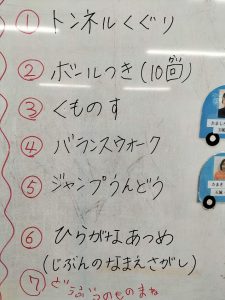 ① トンネルくぐり
② ボールつき(10回)
かい
③ くものす
④ バランスウォーク
⑤ ジャンプうんどう
⑥ ひらがなあつめ
(じぶんのなまえさがし)
⑦ どうぶつのものまね